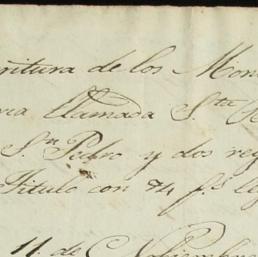 critura de los Mon
ria llamada Sta
Sn Pedro y dos reg
Titulo con 24 fs
11 de Noviembre